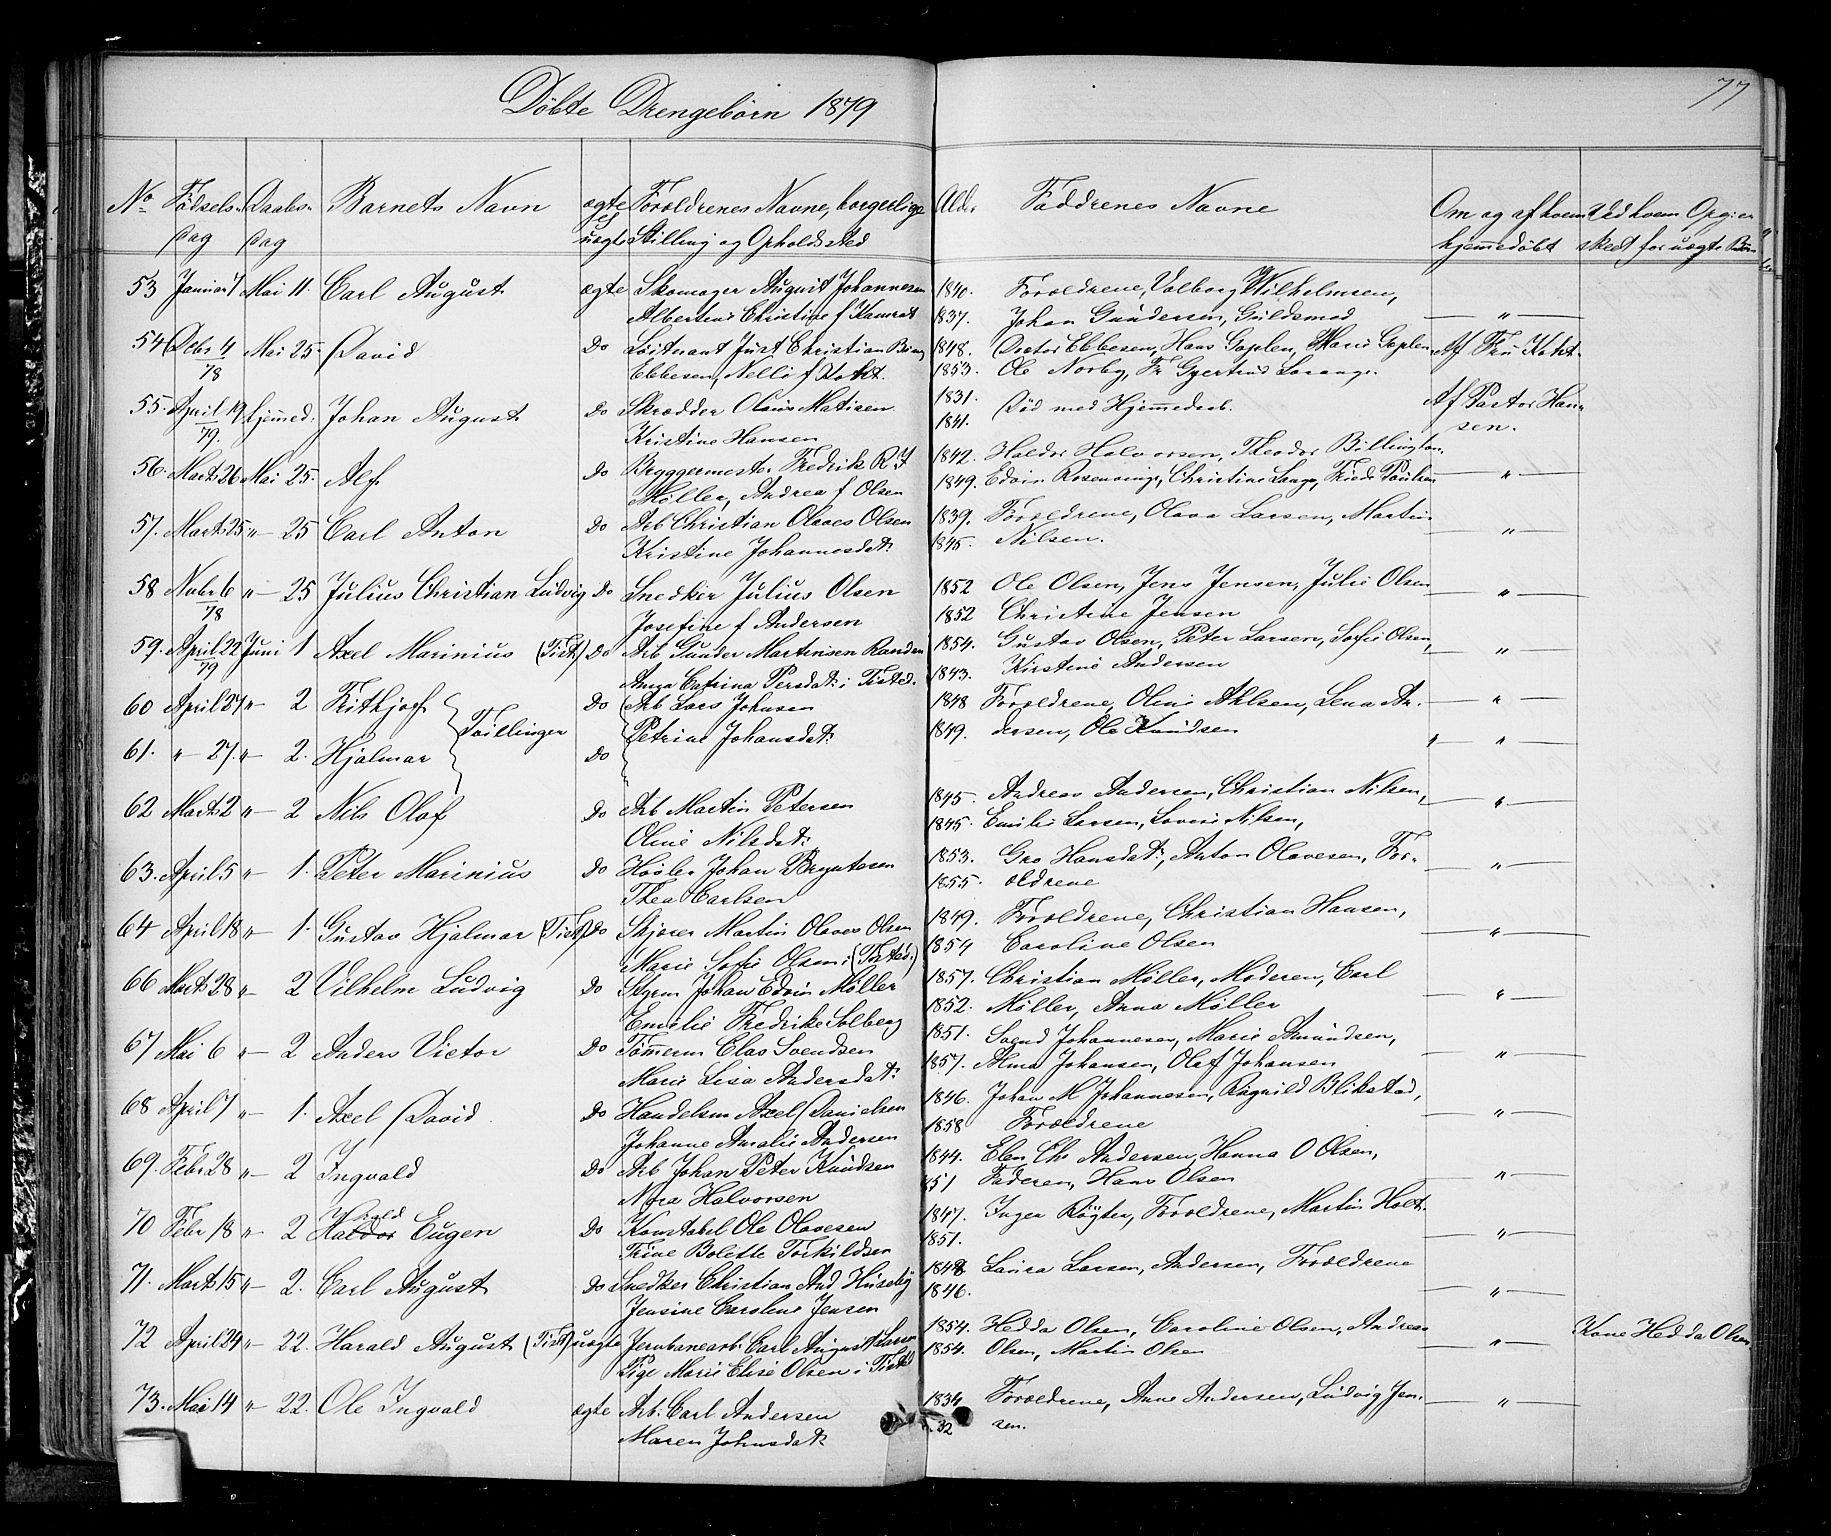 Döbte Drengebörn 1879
77
No Födsels- Daabs- Barnets Navn ægte Forældrenes Navne, borgerlige Ald. Faddrenes Navne Om og af hvem Ved hvem Opgi er
dag dag el. uægte Stilling og Opholdssted hjemmedöbt skeet for uægte Börn
53 Januar 7 Mai 11. Carl August ægte Skomager August Johannesen 1840. Forældrene, Valborg Wilhelmsen,
Albertine Christine f Kamrat 1837. Johan Gundersen, Guldsmed — " —
54 Decbr 4 Mai 25. David Do Löitnant Just Christian Bøm 1848. Doctor Ebbesen, Hans Gaplen, Marie Gaplen Af Fru Koht
78 Ebbesen, Nelli f Koht. 1853. Ole Norby, Fr Gjertrud Lorange.
55. April 19 hjemmed: Johan August Do Skrædder Olaus Matisen 1831. Död med Hjemmedaab. Af Pastor Han-
79. Kristine Hansen 1841. sen.
56. Marts 26 Mai 25. Alf Do Bryggermester Fredrik R. J 1842. Haldor Halvorsen, Theodor Billington
Møller, Andrea f Olsen 1849. Edvin Rosenvinge, Christine Lange, Friede Paulsen — " —
57. Marts 25 "— 25 Carl Anton Do Arb Christian Olaves Olsen 1839. Forældrene, Olava Larsen, Martin
Kristine Johannesdat: 1845. Nilsen. — " —
58 Novbr 6 "— 25 Julius Christian Ludvig Do Snedker Julius Olsen 1852 Ole Olsen, Jens Jensen, Julie Olsen
78 Josefine f Andersen 1852 Christine Jensen — " —
59. April 22 Juni 1 Axel Marinius (Tist.) Do Arb Gunder Martinsen Randem 1854. Gustav Olsen, Peter Larsen, Sofie Olsen,
79 Anna Catrina Persdat: i Tisted. 1843. Kirstine Andersen — " —
60 April 27 "— 2 Frithjof Do Arb Lars Johnsen 1848 Forældrene, Oline Ahlsen, Lena An- — " —
Tvillinger
61. " 27. "— 2. Hjalmar Do Petrine Johansdat: 1849. dersen, Ole Knudsen " — " —
62 Marts 2 "— 2 Nils Olaf Do Arb Martin Petersen 1845. Andreas Andersen, Christian Nilsen,
Oline Nilsdat: 1845. Emilie Larsen, Lovise Nilsen, — " —
63. April 5 "— 1. Peter Marinius Do Høvler Johan Bryntesen 1853. Gro Hansdat:, Anton Olavesen, For-
Thea Carlsen 1855. ældrene — " —
64 April 18 "— 1. Gustav Hjalmar (Tist) Do Skjærer Martin Olaves Olsen 1849. Forældrene, Christian Hansen,
Marie Sofie Olsen i (Tisted) 1854 Caroline Olsen — " —
66 Marts 28 "— 2 Vilhelm Ludvig Do Styrm Johan Edvin Møller 1857. Christian Møller, Moderen, Carl
Emilie Fredrike Solberg 1852. Møller, Anna Møller — " —
67 Mai 6 "— 2 Anders Victor Do Tømmerm Clas Svendsen 1851. Svend Johannesen, Marie Amundsen,
Marie Lisa Andersdat: 1857. Alma Johansen, Olaf Johansen — " —
68 April 7 "— 1. Axel David Do Handelsm Axel Danielsen 1846. Johan M Johannesen, Ragnild Blikstad,
Johanne Amalie Andersen 1858 Forældrene — " —
69. Febr 28 "— 2 Ingvald Do Arb Johan Peter Knudsen 1844. Elen Chr Andersen, Hanna O Olsen,
Nora Halvorsen 51 Faderen, Hans Olsen — " —
Harald
70 Febr 18 "— 2 Haldor Eugen Do Konstabel Ole Olavesen 1847. Inger Røgter, Forældrene, Martin Holt.
Trine Bolette Torkildsen 1851. — " —
71. Marts 15 "— 2. Carl August Do Snedker Christian And Huseby 1848 Laura Larsen, Andersen, Forældrene
Jensine Carolene Jensen 1846. — " —
72 April 24 "— 22. Harald August (Tist) uægte Jernbanearb Carl August Larsen 1854. Hedda Olsen, Caroline Olsen, Andreas Kone Hedda Olsen
Pige Marie Elise Olsen i Tisted 1854. Olsen, Martin Olsen — " —
73. Mai 14 "— 22. Ole Ingvald ægte Arb: Carl Andersen 1834 Forældrene, Anne Andersen, Ludvig Jen- — " —
Maren Johnsdat: 32 sen.